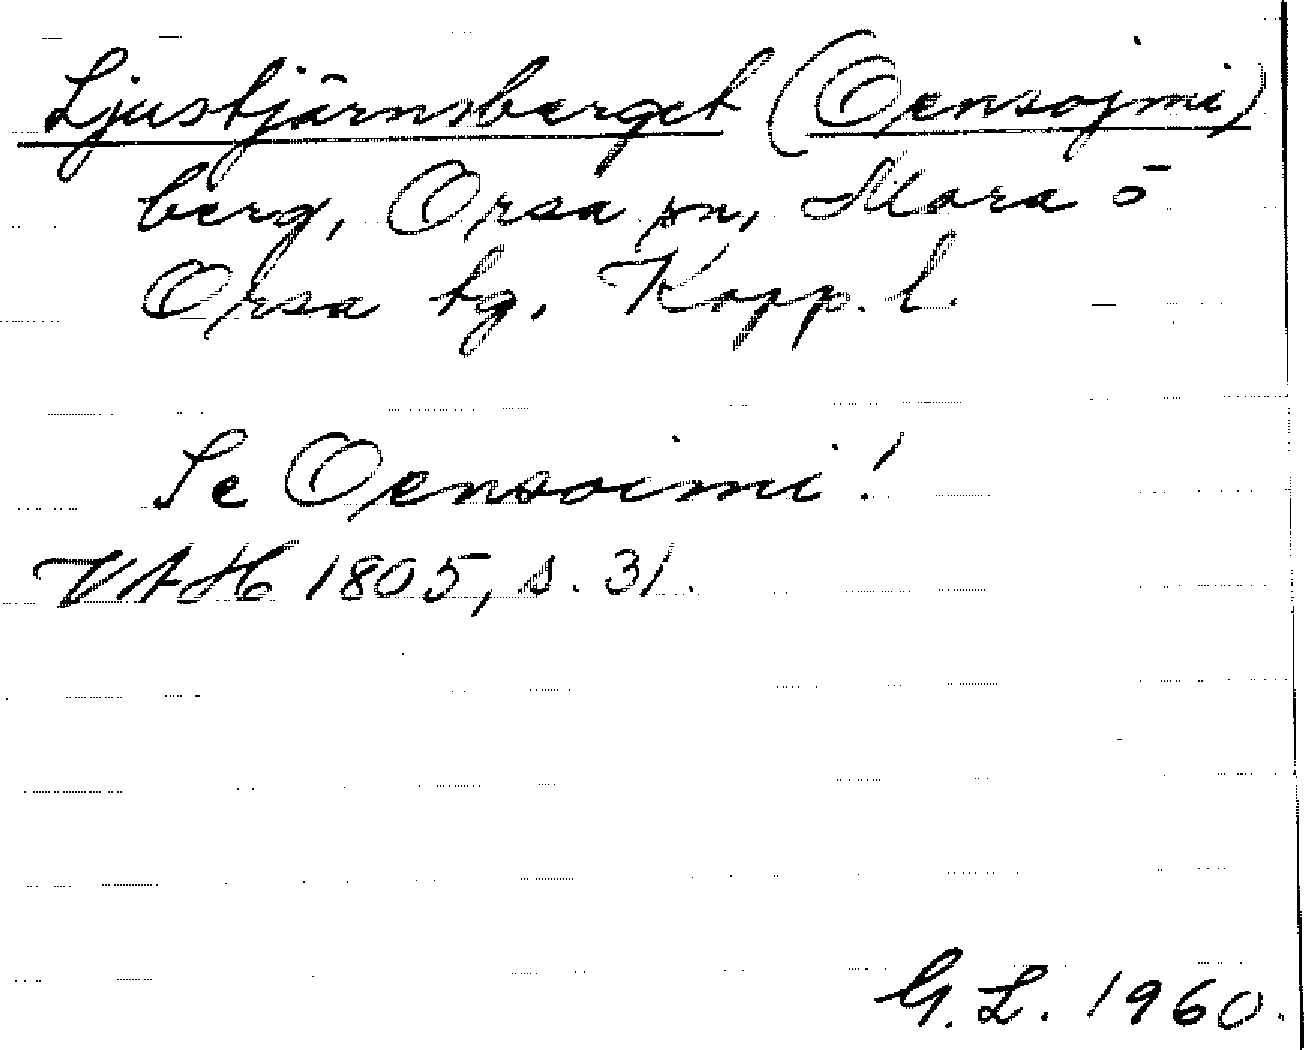 Ljustjärnsberget (Oensojmi)
berg, Orsa sn, Mora o
Orsa tg. Kopp. l.
Se Oensoimi!
VAH 1805, s. 31.
G. L. 1960.